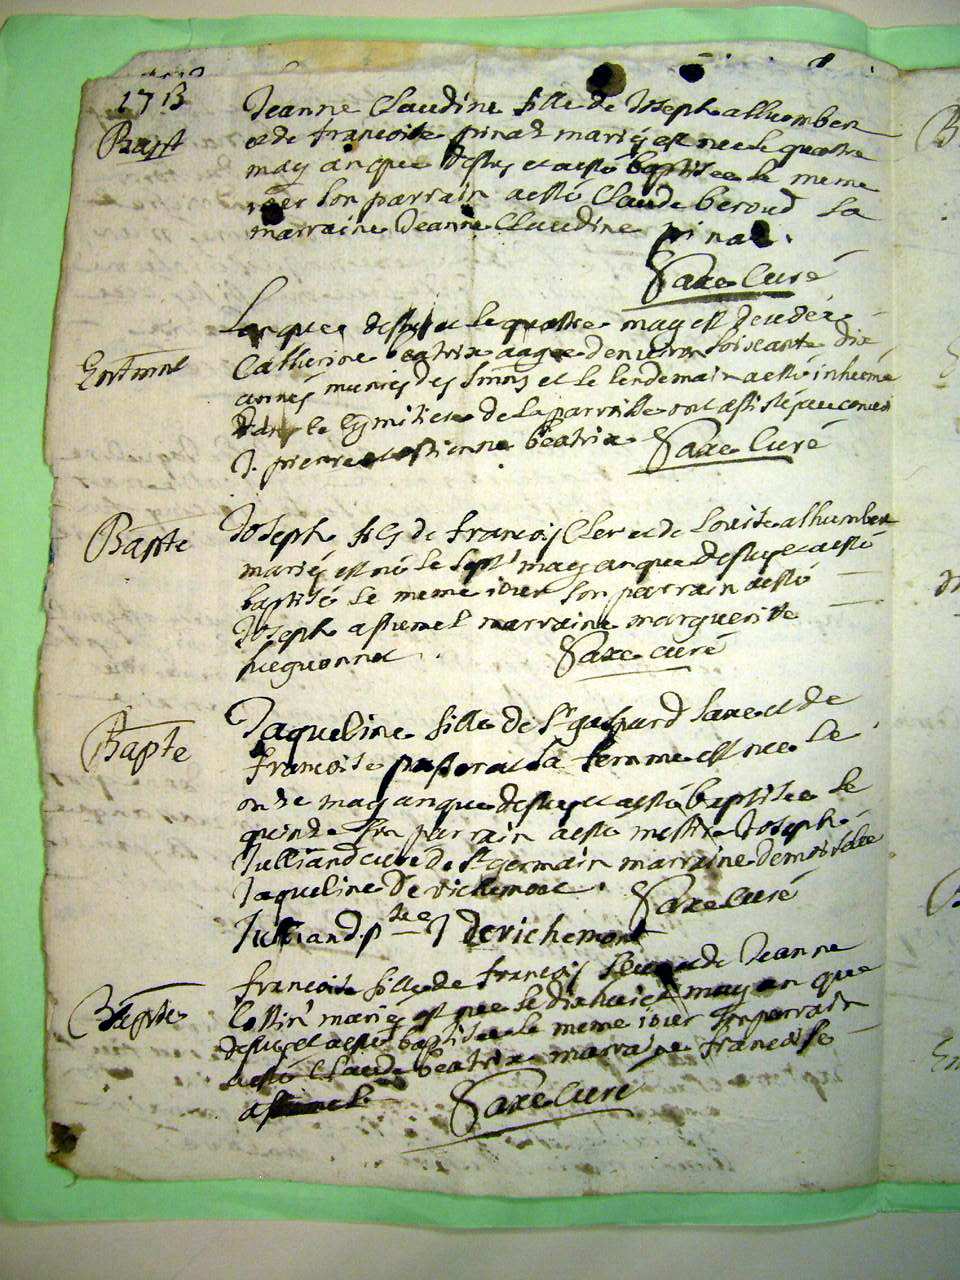 1713
Bapt
Jeanne Claudine fille de Joseph alhumbert
et de francoise pinad mariés est nee le quatre
may an que desus et a esté baptisee le meme
iour son parrain a esté Claude beroud la
marraine Jeanne Claudine pinad.
Saxe Curé
Lan que desus et le quatre may est decedée
Entmnt
Catherine beatrix aagee denuiron soixante dix
années munies des smns et le lendemain a esté inhumé
dans le Cymitiere de la parroisse ont assisté au conuoi
J. pierre et estienne beatrix Saxe Curé
Bapte
Joseph fils de francois Cler et de Louise alhumbert
mariés est né le sept may an que desus et a esté
baptisé le meme iour son parrain a esté
Joseph assumel marraine marguerite
hugonnet
Saxe curé
Bapte
Jaqueline fille de Sr gaspard Saxe et de
francoise pastorat sa femme est nee le
onze may an que desus et a esté baptisee le
quinze son parrain a esté messire Joseph
Julliand curé de St germain marraine demoiselle
Jaqueline De richemont.
Saxe Curé
Julliand. ptre J derichemont
Bapte
francoise fille de francois et de Jeanne
Cottin mariés est nee le dixhuict may an que
desus et a esté baptisee le meme iour son parrain
a esté Claude beatrix marraine francoise
assumel
Saxe Curé